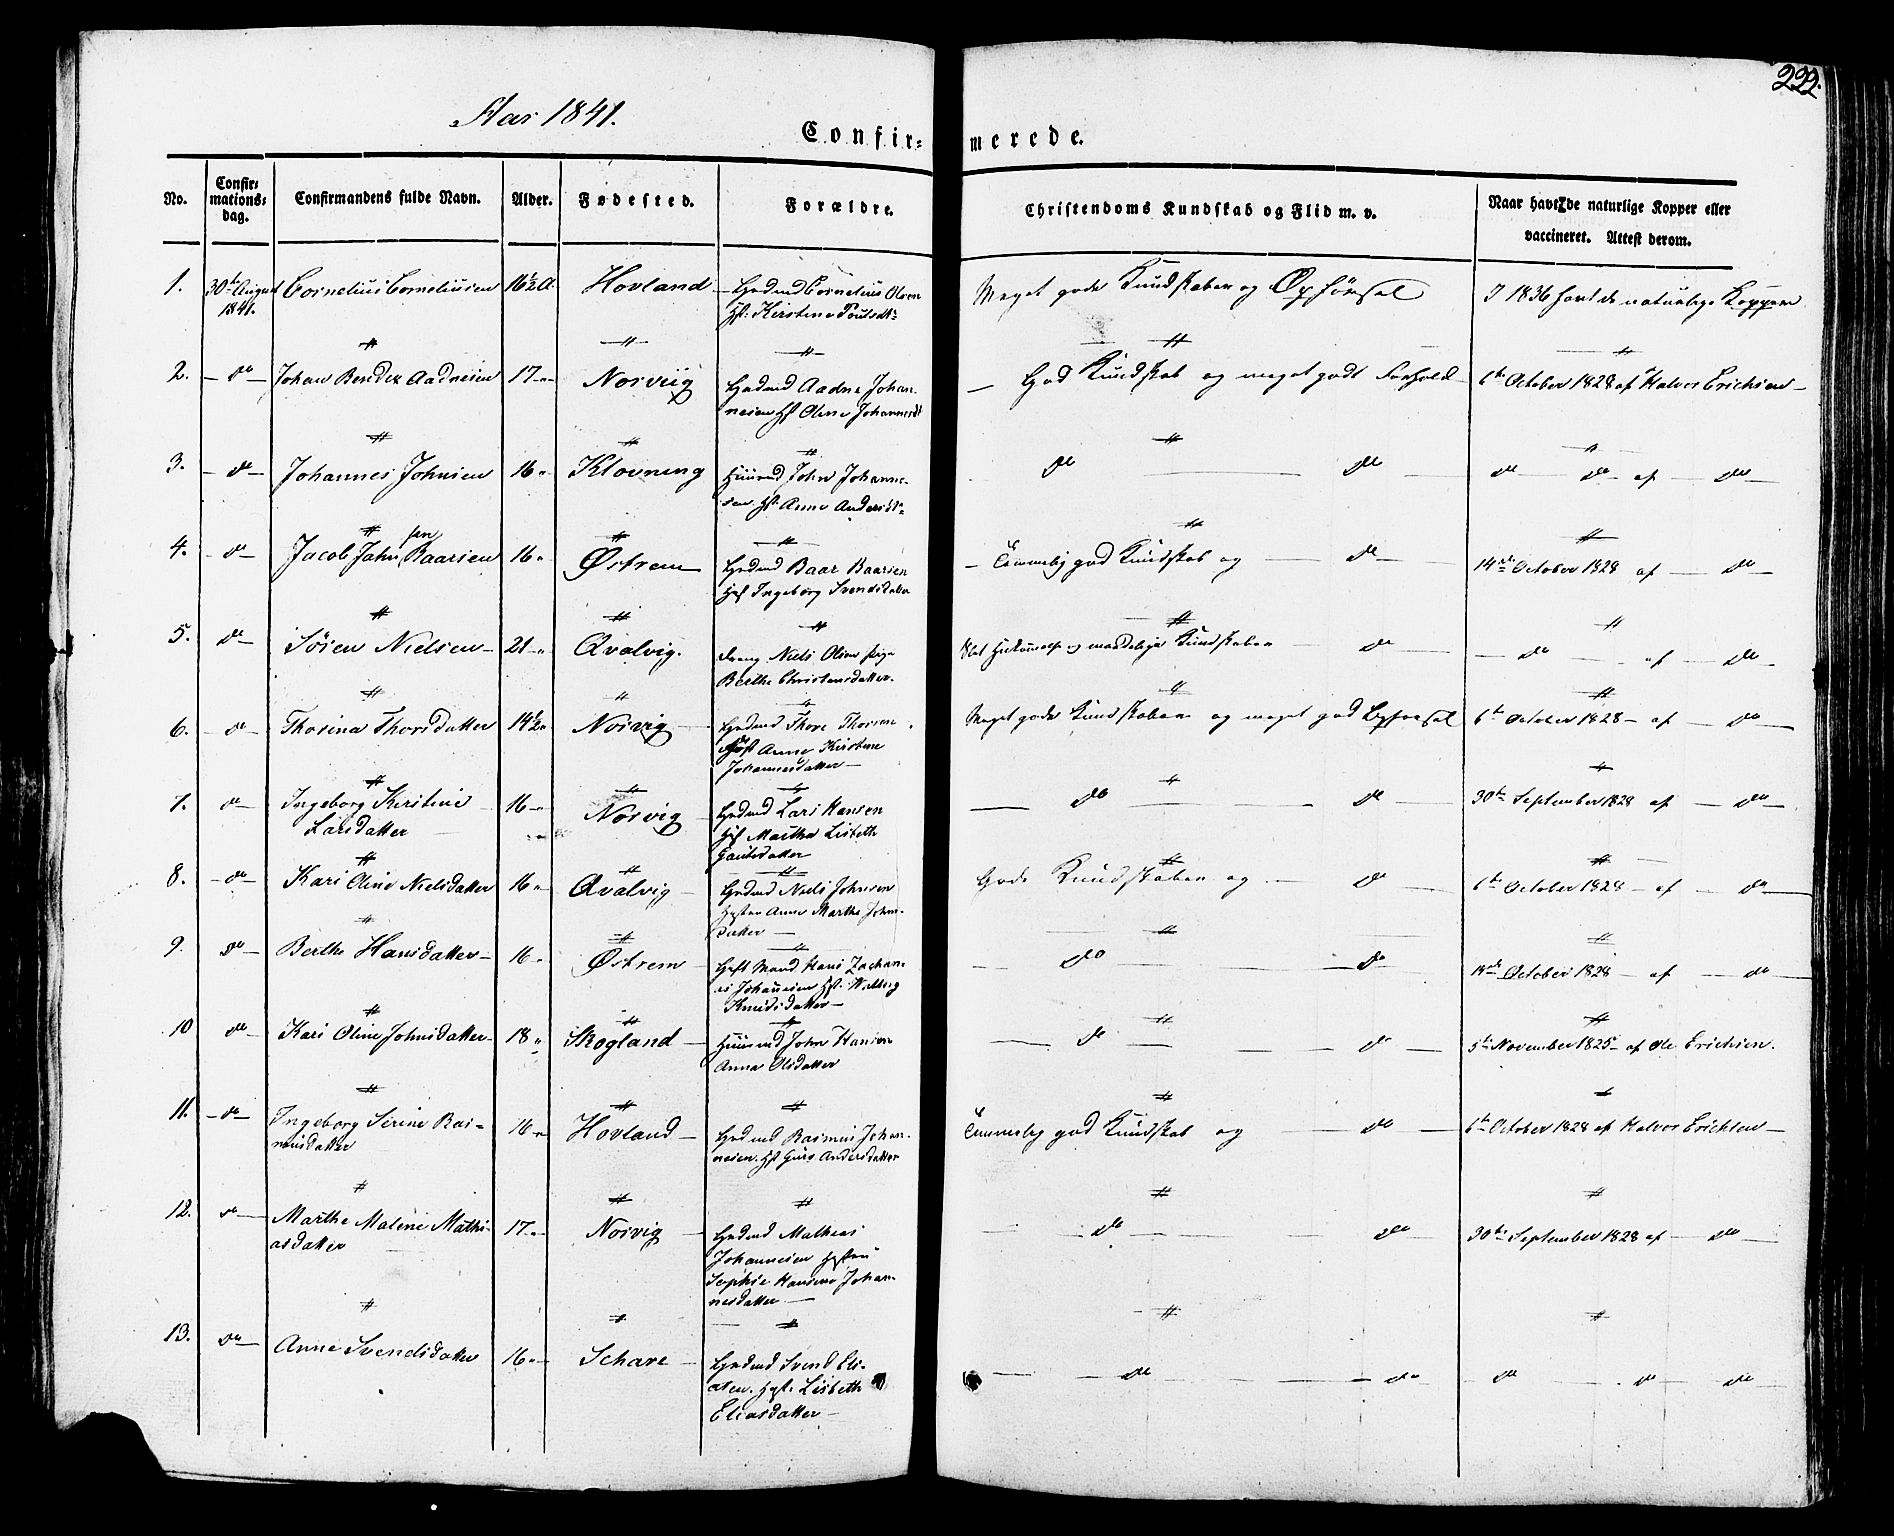 222.
Aar 1841.
Confir= merede.
No.
Confir=
mations=
dag.
Confirmandens fulde Navn.
Alder.
Fødested.
Forældre.
Christendoms Kundskab og Flid m. v.
Naar havt de naturlige Kopper eller
vaccineret. Attest derom.
1. 30te August Cornelius Corneliusen 16½ A. Hovland Grdmd Cornelius Olsen Meget gode Kundskaber og Opførsel I 1836 havt de naturlige Kopper
1841. Hst: Kirstine
2. do Johan Bender Aadnesen 17 Norviig Grdmd Aadne Johan= God Kundskab og meget godt Forhold 6te October 1828 af Halvor Erichsen
nesen Hst Oline Johannesdt
3. do Johannes Johnsen 16 Klovning Huusmd John Johanne= do do do do af do
sen Hst. Anne Andersdt
sen
4. do Jacob John Baarsen 16 Østrem Grdmd Baar Baarsen Temmelig god Kundskab og do 14de October 1828 af do
Hst Ingeborg Svendsdatter
5. do Søren Nielsen 21 Qvalvig. Dreng Niels Olsen Pige Slet Hukommelse og maadelige Kundskaber do do af do
Berthe Christensdatter.
6. do Thorina Thorsdatter 14½ Norvig Grdmd Thore Thorsen Meget gode Kundskaber og meget god Opførsel 6te October 1828 af do
Anne Kirstine
Johannesdatter
7. do Ingeborg Kirstine 16 Norvig Grdmd Lars Hansen do do 30te September 1828 af do
Larsdatter Hst Martha Lisbeth
Gautsdatter
8. do Kari Oline Nielsdatter 16 Qvalvig Grdmd Niels Johnsen Gode Kundskaber og do 6te October 1828 af do
Hustru Anne Marthe Johns=
datter
9. do Berthe Hansdatter 16 Østrem Mand Hans Zachari= do do 14de October 1828 af do
as Johannesen Hst.
Knudsdatter
10 do Kari Oline Johnsdatter 18 Skogland Huusmd John Hansen do do 5te November 1825 af Ole Erichsen.
Anna Olsdatter
11. do Ingeborg Serine Ras= 16 Hovland Grdmd Rasmus Johan= Temmelig god Kundskab og do 6te October 1828 af Halvor Erichsen
musdatter nesen. Hst Guro Andersdatter
12. do Marthe Malene Mathi= 17 Norvig Grdmd Mathias do do 30te September 1828 af do
asdatter Johannesen Hustru
Sophie Hansine Johan=
nesdatter
13. do Anne Svendsdatter 16 Schare Grdmd Svend Eli= do do do do do
asen. Hst. Lisbeth
Eliasdatter